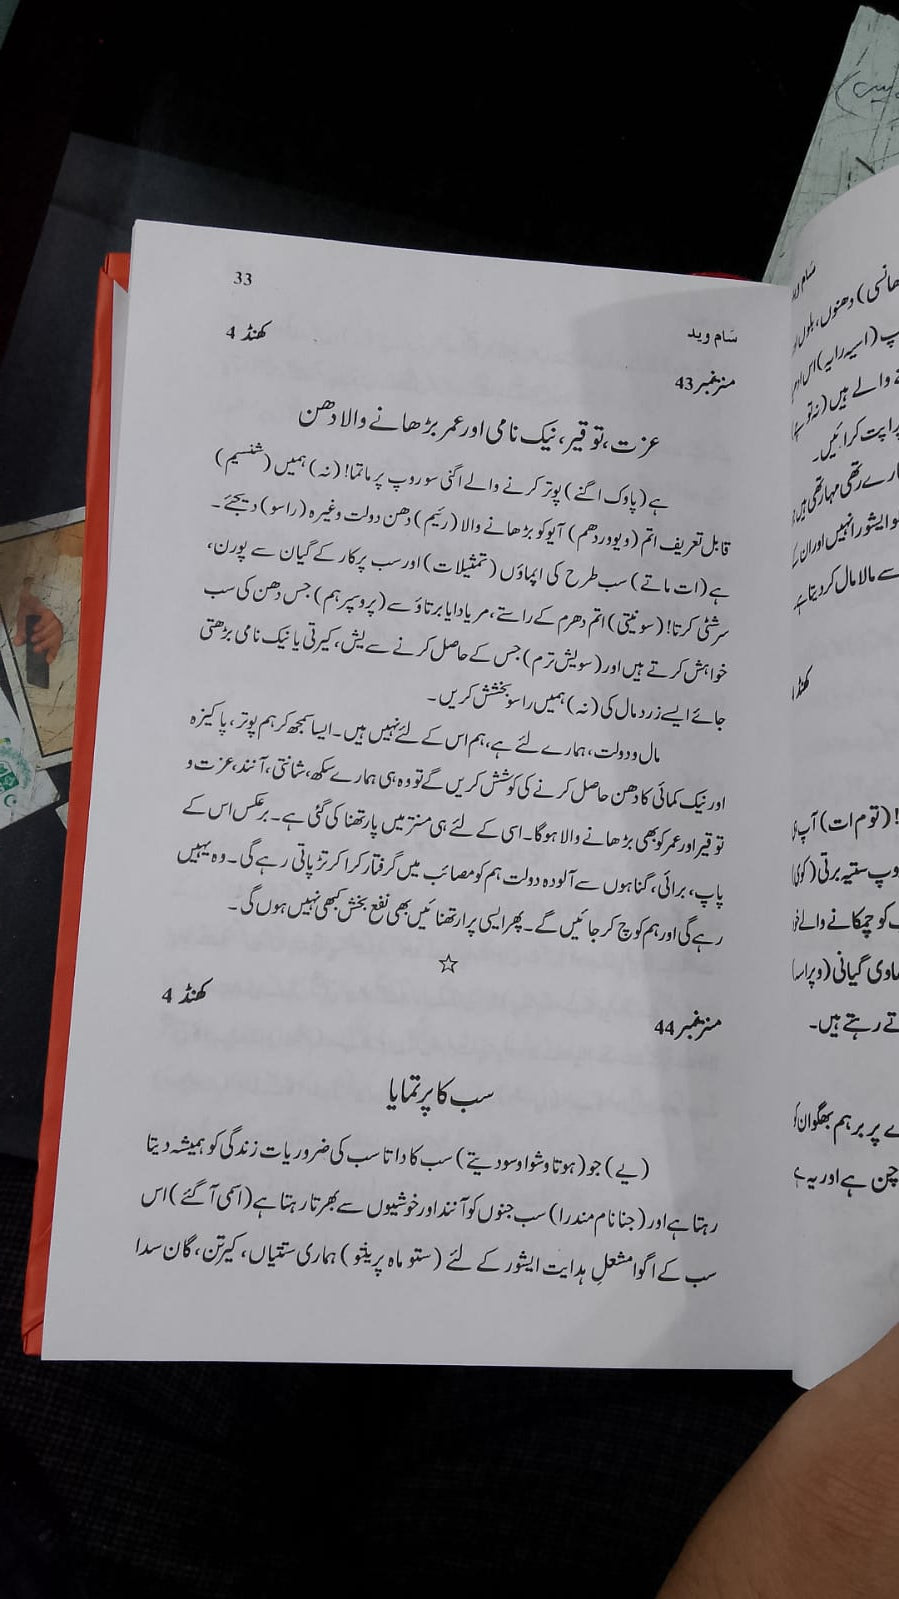 33
سَام وید
کھنڈ 4
منتر نمبر 43
عزت، توقیر، نیک نامی اور عمر بڑھانے والا دھن
ہے (پاوک اگنے) پوتر کرنے والے اگنی سوروپ پرماتما! (نہ) ہمیں (شنسیم)
قابل تعریف اتم (ویووردھم) آیو کو بڑھانے والا (رئیم) دھن دولت وغیرہ (راسو) دیجئے۔
ہے (ات ماتے) سب طرح کی اپماؤں (تمثیلات) اور سب پرکار کے گیان سے پورن،
سرشٹی کرتا! (سونیتی) اتم دھرم کے راستے، مریادا یا برتاؤ سے (پروسپرہم) جس دھن کی سب
خواہش کرتے ہیں اور (سویش ترم) جس کے حاصل کرنے سے یش، کیرتی یا نیک نامی بڑھتی
جائے ایسے زرد مال کی (نہ) ہمیں راسو بخشش کریں۔
مال و دولت، ہمارے لئے ہے، ہم اس کے لئے نہیں ہیں۔ ایسا سمجھ کر ہم پوتر، پاکیزہ
اور نیک کمائی کا دھن حاصل کرنے کی کوشش کریں گے تو وہ ہی ہمارے سکھ، شانتی، آنند، عزت و
توقیر اور عمر کو بھی بڑھانے والا ہوگا۔ اسی کے لئے ہی منتر میں پارتھنا کی گئی ہے۔ برعکس اس کے
پاپ، برائی، گناہوں سے آلودہ دولت ہم کو مصائب میں گرفتار کرا کر تڑپاتی رہے گی۔ وہ یہیں
رہے گی اور ہم کوچ کر جائیں گے۔ پھر ایسی پرارتھنائیں بھی نفع بخش کبھی نہیں ہوں گی۔
☆
کھنڈ 4
منتر نمبر 44
سب کا پرتمایا
(یے) جو (ہوتا وشوا وسو دیتے) سب کا داتا سب کی ضروریات زندگی کو ہمیشہ دیتا
رہتا ہے اور (جنانام مندرا) سب جنوں کو آنند اور خوشیوں سے بھرتا رہتا ہے (اسمی آگئے) اس
سب کے اگوا مشعلِ ہدایت ایشور کے لئے (ستوماہ پرینتو) ہماری ستتیاں، کیرتن، گان سدا